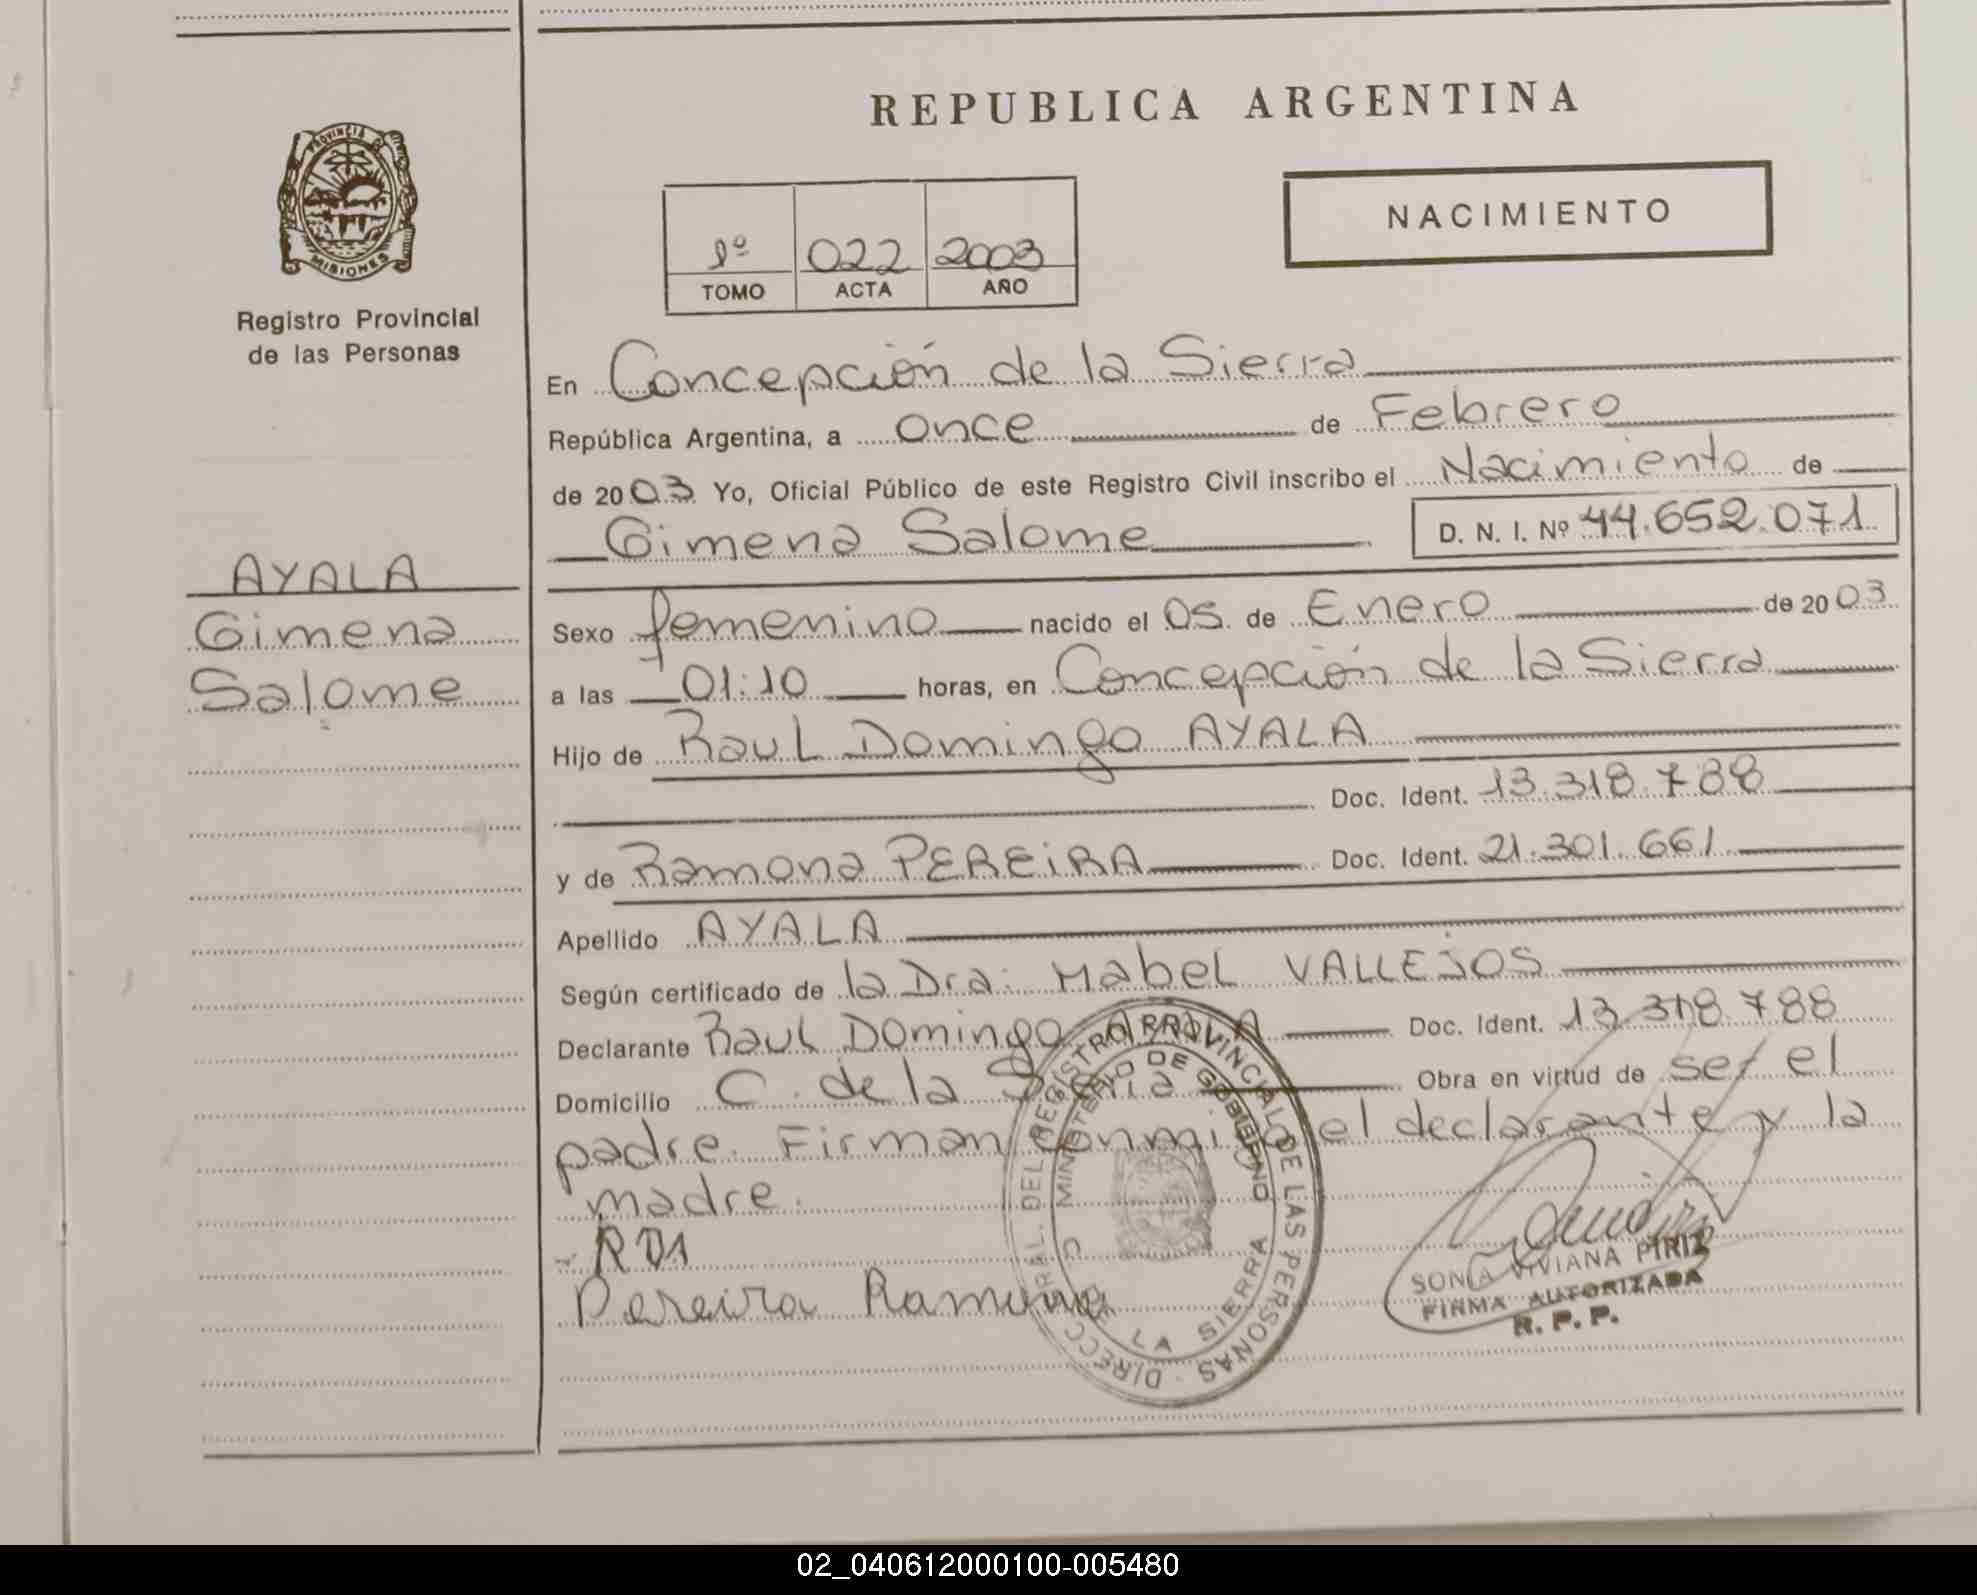 REPUBLICA ARGENTINA
PROVINCIA DE
MISIONES
Registro Provincial
de las Personas
NACIMIENTO
1º 022 2003
TOMO ACTA AÑO
En Concepción de la Sierra
República Argentina, a once de Febrero
de 2003 Yo, Oficial Público de este Registro Civil inscribo el Nacimiento de
Gimena Salome D. N. I. Nº 44.652.071
AYALA
Gimena
Salome
Sexo femenino nacido el 05 de Enero de 2003
a las 01:10 horas, en Concepción de la Sierra
Hijo de Raul Domingo AYALA
Doc. Ident. 13.318.788
y de Ramona PEREiRA Doc. Ident. 21.301.661
Apellido AYALA
Según certificado de la Dra. Mabel VALLEJOS
Declarante Raul Domingo AYALA Doc. Ident. 13.318.788
Domicilio C. de la Sierra Obra en virtud de ser el
padre. Firman conmigo el declarante y la
madre.
RDA
Pereira Ramona
DIRECC. GRAL. DEL REGISTRO PROVINCIAL DE LAS PERSONAS
MINISTERIO DE GOBIERNO
C. DE LA SIERRA
SONIA VIVIANA PIRIZ
FIRMA AUTORIZADA
R. P. P.
02_040612000100-005480